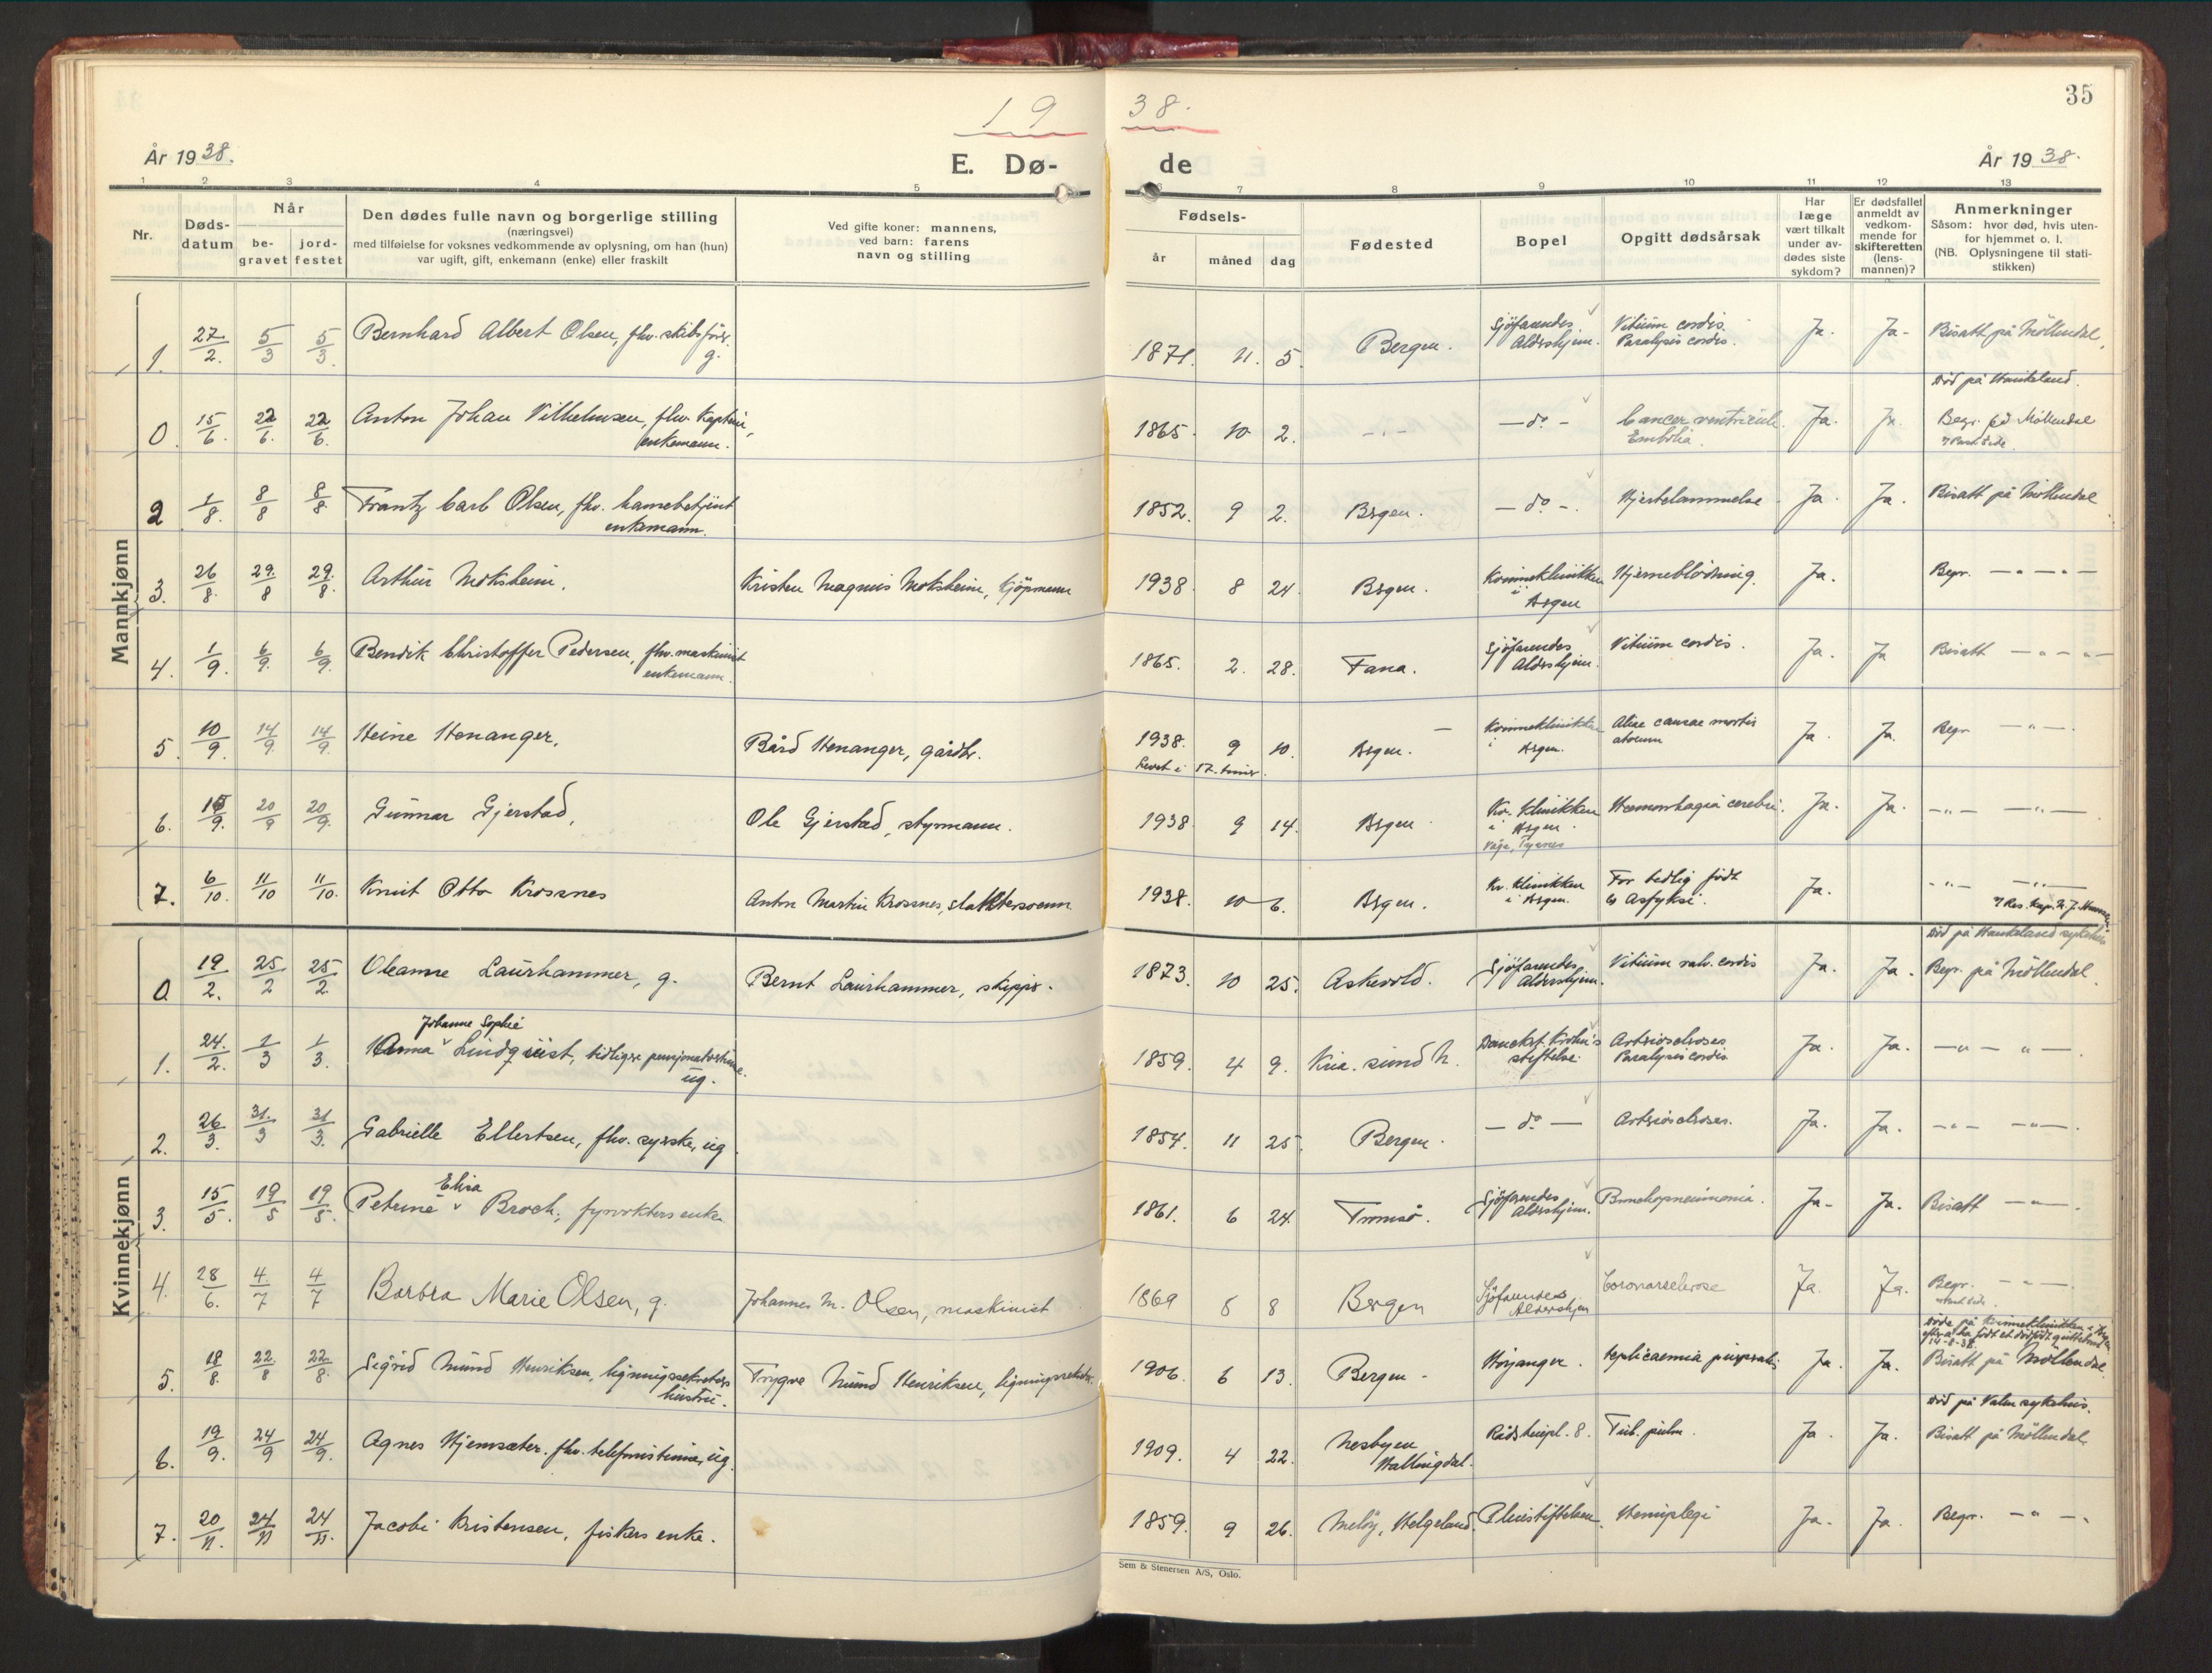 35
19 38.
År 1938.
E. Dø- de
År 1938.
1 2 3 4 5 6 7 8 9 10 11 12 13
Nr.
Døds-
datum
Når
be-
gravet
jord-
festet
Den dødes fulle navn og borgerlige stilling
(næringsvei)
med tilføielse for voksnes vedkommende av oplysning, om han (hun)
var ugift, gift, enkemann (enke) eller fraskilt
Ved gifte koner: mannens,
ved barn: farens
navn og stilling
Fødsels-
år måned dag
Fødested
Bopel
Opgitt dødsårsak
Har
læge
vært tilkalt
under av-
dødes siste
sykdom?
Er dødsfallet
anmeldt av
vedkom-
mende for
skifteretten
(lens-
mannen)?
Anmerkninger
Såsom: hvor død, hvis uten-
for hjemmet o. l.
(NB. Oplysningene til stati-
stikken)
Mannkjønn
1. 27/2. 5/3 5/3. Bernhard Albert Olsen, fhv. skibsfører. g. 1871. 11. 5. Bergen. Sjöfarendes Aldershjem. Vitium cordis. Paralysis cordis. Ja. Ja- Bisatt på Möllendal.
Död på Haukeland.
0. 15/6. 22/6. 22/6. Anton Johan Vilhelmsen, fhv. Kaptein, enkemann. 1865. 10 2. -"- -do- Cancer ventriculi. Emboliä. Ja. Ja. Begr. på Möllendal
2 1/8. 8/8 8/8 Frantz Carl Olsen, fhv. havnebetjent enkemann. 1852. 9 2. Bergen. -do-. Hjertelammelse Ja. Ja. Bisatt på Möllendal
3. 26/8. 29./8 29./8. Arthur Moksheim. Kristen Magnus Moksheim, kjöpmann 1938. 8 24. Bergen. Kvinneklinikken i Bergen Hjerneblödning. Ja. Begr. -"-"-
4. 1/9. 6/9. 6/9. Bendik Christoffer Pedersen, fhv. maskinist enkemann. 1865. 2. 28. Fana. Sjöfarendes Aldershjem. Vitium cordis. Ja. Ja Bisatt -"-"-
5. 10/9. 14/9. 14/9. Heine Henanger. Bård Henanger, gårdbr. 1938. 9 10. Bergen. Kvinneklinikken i Bergen. Aliae causae mortis Ja. Ja. Begr -"-
Levet i 17. timer.
6. 15/9. 20/9 20/9. Gunnar Gjerstad. Ole Gjerstad, styrmann. 1938 9 14. Bergen Kv. Klinikken i Bergen. Våge, Tysnes Hæmorrhagia cerebri. Ja. Ja. -"- -"-
7. 6/10. 11/10 11/10. Knut Otto Krossnes Anton Martin Krossnes, slaktersvenn 1938. 10 6. Bergen. Kv. klinikken i Bergen. For tidlig födt og Asfyksi. Ja. -"- -"-
Kvinnekjønn
Död på Haukeland sykehus
0. 19/2. 25/2 25/2. Oleanne Laurhammer, g. Bernt Laurhammer, skipper. 1873. 10 25. Askevold. Sjöfarendes Aldershjem. Vitium valv. cordis Ja. Ja. Begr. på Möllendal.
Johanne Sophie
1. 24./2. 1/3 1/3. Anna Lindquist, tidligere pensjonatvertinne. ug. 1859. 4 9. Kria. sund N. Danckert Krohn's stiftelse. Arteriosclroses Paralysis cordis Ja. Ja. -"- "-.
2. 26/3. 31./3 31/3. Gabrielle Ellertsen, fhv. syerske, ug. 1854. 11 25. Bergen. -do- Arteriosclroses. Ja. Ja. -"- -"-.
Elisa
3. 15/5. 19/5 19/5. Petrine Broch, fyrvokters enke 1861. 6 24. Tromsö. Sjöfarendes Aldershjem. Bronchopneumonia. Ja- Ja. Bisatt -"-.
4. 28/6. 4./7 4/7 Barbra Marie Olsen, g. Johannes M. Olsen, maskinist 1869 5 8 Bergen Sjöfarendes Aldershjem Coronarsclerose Ja. Ja. Begr. -"-.
Döde på Kvinneklinikken i Bergen
14-8-38.
5. 18/8. 22./8 22/8. Sigrid Mund Henriksen, ligningssekretærs hustru. Trygve Mund Henriksen, ligningssekretær. 1906. 6 13. Bergen. Höyanger. Septicaemia puerperalis Ja. Ja. Bisatt på Möllendal
Död på Valen sykehus.
6. 19/9. 24/9 24/9. Agnes Hjemsæter. fhv. telefonistinne, ug. 1909. 4 22. Nesbyen Hallingdal. Rådstupl. 8. Tub. pulm. Ja. Ja. Bisatt på Möllendal
7. 20/11. 24/11 24/11. Jacobi Kristensen, fiskers enke. 1859. 9 26. Melöy, Helgeland. Pleiestiftelsen. Hemiplegi Ja. Ja. Begr. -"-.
Sem & Stenersen A/S, Oslo.